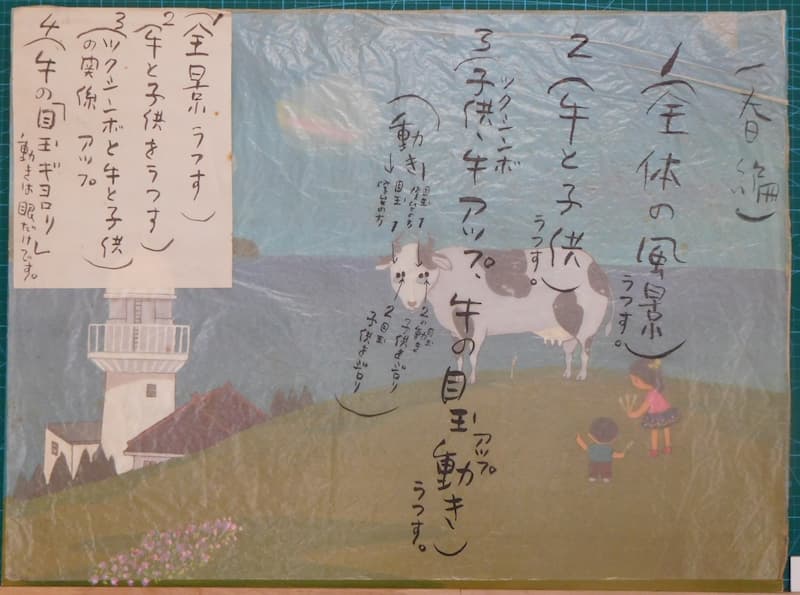 一春編)
1(全体の風景)
うつす。
2(牛と子供)
うつす。
ツクシンボ
3(子供、牛アップ、牛の目玉動き)
アップ
うつす。
(動き
1
目玉
1
目玉
2の動き
子供をジロリ
2目玉
子供をジロリ)
1(全景うつす)
2(牛と子供をうつす)
3(ツクシンボと牛と子供
の関係 アップ)
4(牛の「目玉ギヨロリ」
動きは眼だけです。